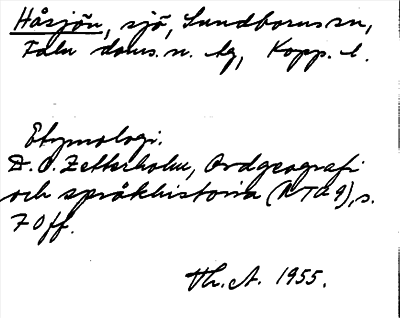 Håsjön, sjö, Sundborns sn,
Falu doms.n. tg, Kopp. l.
Etymologi.
D. O. Zetterholm, Ordgeografi
och språkhistoria (NTG 9), s.
70 ff.
Th. A. 1955.